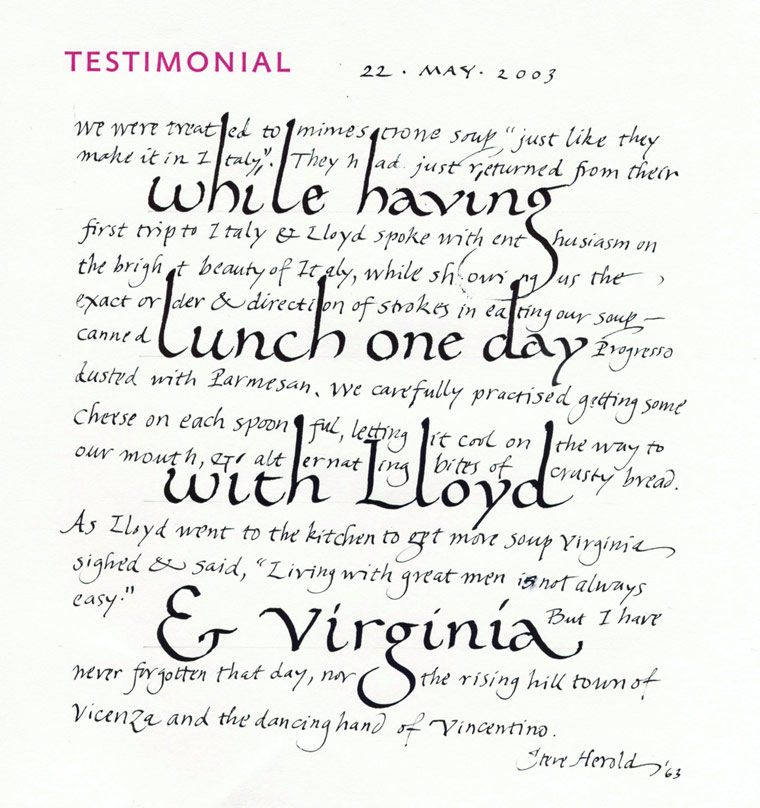 TESTIMONIAL 22 · MAY · 2003
We were treated to mimestrone soup, "just like they
make it in Italy,". They had just returned from their
while having
first trip to Italy & Lloyd spoke with enthusiasm on
the bright beauty of Italy, while showing us the
exact order & direction of strokes in eating our soup —
lunch one day
canned Progresso
dusted with Parmesan. We carefully practised getting some
cheese on each spoonful, letting it cool on the way to
our mouth, & alternating bites of crusty bread.
with Lloyd
As Lloyd went to the kitchen to get more soup Virginia
sighed & said, "Living with great men is not always
easy."
& Virginia
But I have
never forgotten that day, nor the rising hill town of
Vicenza and the dancing hand of Vincentino.
Steve Herold '63